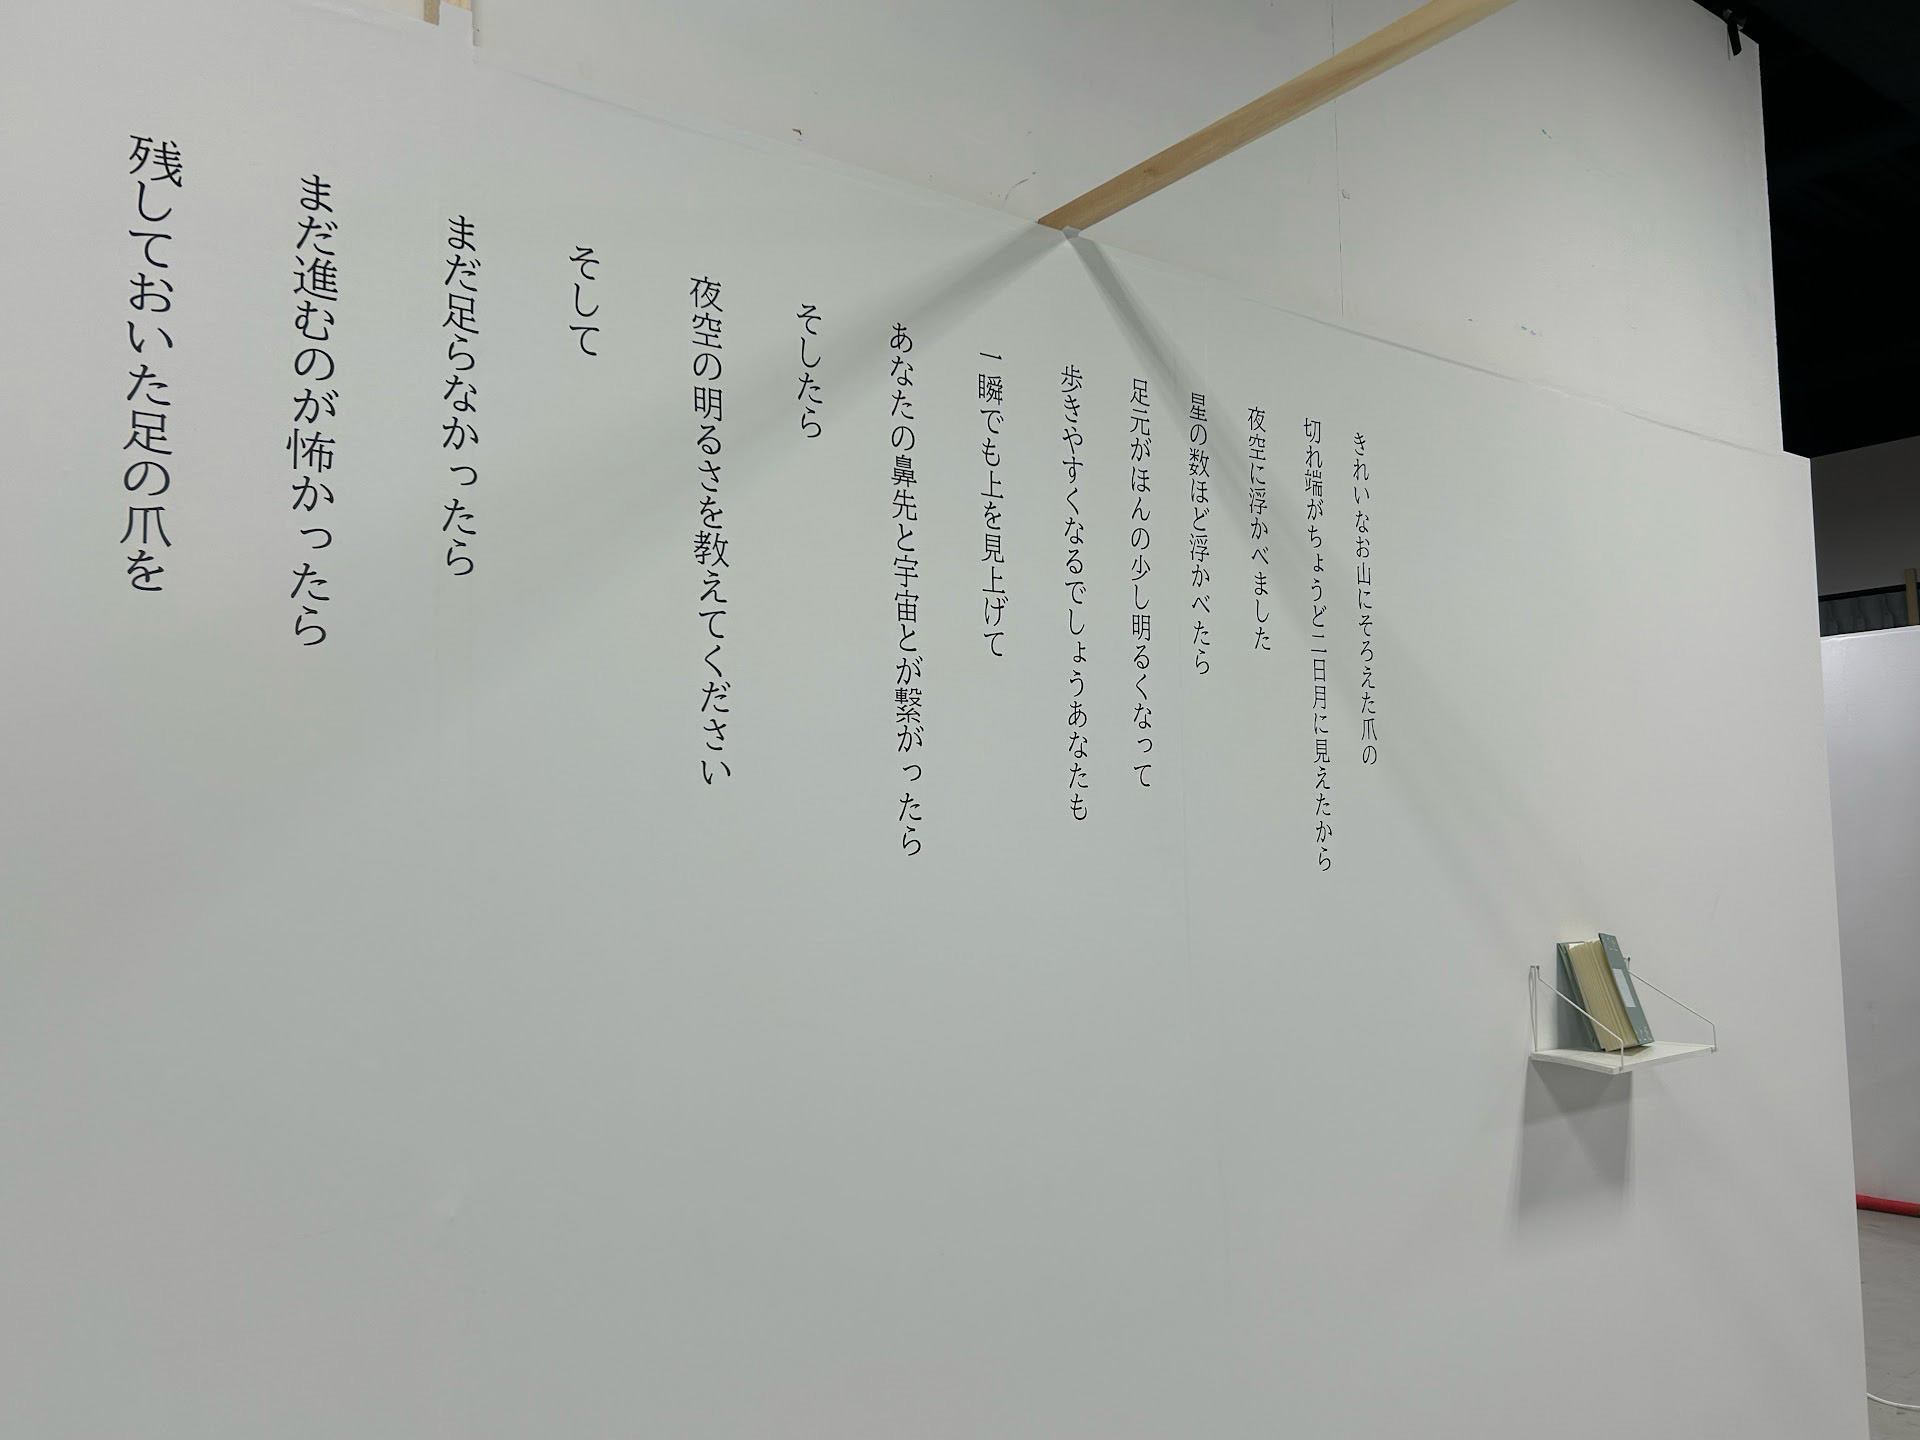 きれいなお山にそろえた爪の
切れ端がちょうど二日月に見えたから
夜空に浮かべました
星の数ほど浮かべたら
足元がほんの少し明るくなって
歩きやすくなるでしょうあなたも
一瞬でも上を見上げて
あなたの鼻先と宇宙とが繋がったら
そしたら
夜空の明るさを教えてください
そして
まだ足らなかったら
まだ進むのが怖かったら
残しておいた足の爪を